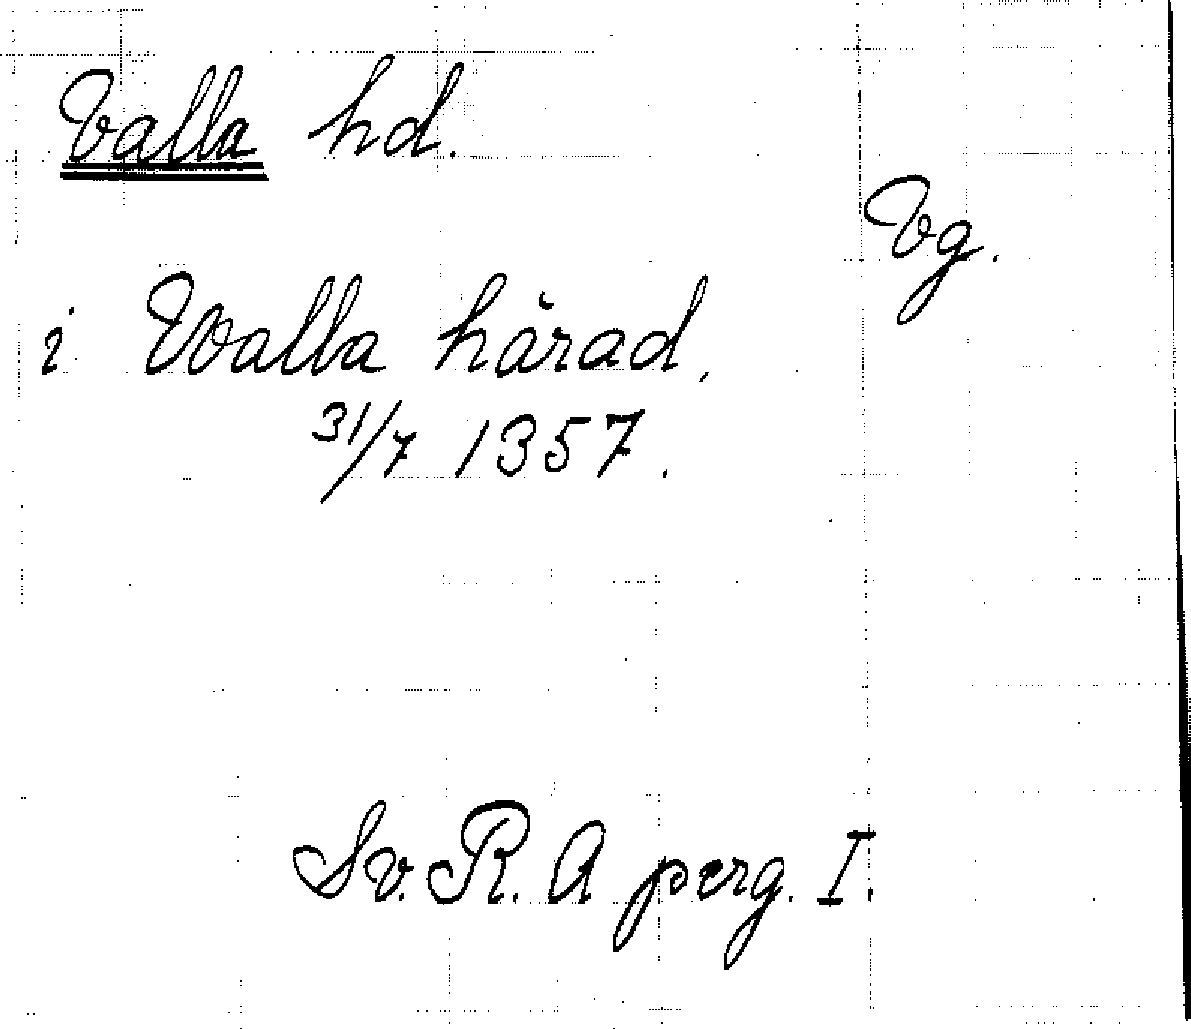 Valla hd.
Vg.
i Walla härad,
31/7 1357.
Sv. R. A perg. I.